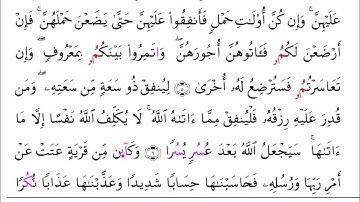 عَلَيْهِنَّ ۚ وَإِن كُنَّ أُو۟لَٰتِ حَمْلٍۢ فَأَنفِقُوا۟ عَلَيْهِنَّ حَتَّىٰ يَضَعْنَ حَمْلَهُنَّ ۚ فَإِنْ
أَرْضَعْنَ لَكُمُۥ فَـَٔاتُوهُنَّ أُجُورَهُنَّ ۖ وَاتَمِرُوا۟ بَيْنَكُمُۥ بِمَعْرُوفٍۢ ۖ وَإِن
تَعَاسَرْتُمُۥ فَسَتُرْضِعُ لَهُۥٓ أُخْرَىٰ ۝٥ لِيُنفِقْ ذُو سَعَةٍۢ مِّن سَعَتِهِۦ ۖ وَمَن
قُدِرَ عَلَيْهِ رِزْقُهُۥ فَلْيُنفِقْ مِمَّآ ءَاتَىٰهُ ٱللَّهُ ۚ لَا يُكَلِّفُ ٱللَّهُ نَفْسًا إِلَّا مَآ
ءَاتَىٰهَا ۚ سَيَجْعَلُ ٱللَّهُ بَعْدَ عُسُرٍۢ يُسُرًۭا ۝٦ وَكَآئِن مِّن قَرْيَةٍ عَتَتْ عَنْ
أَمْرِ رَبِّهَا وَرُسُلِهِۦ فَحَاسَبْنَٰهَا حِسَابًۭا شَدِيدًۭا وَعَذَّبْنَٰهَا عَذَابًۭا نُّكُرًۭا